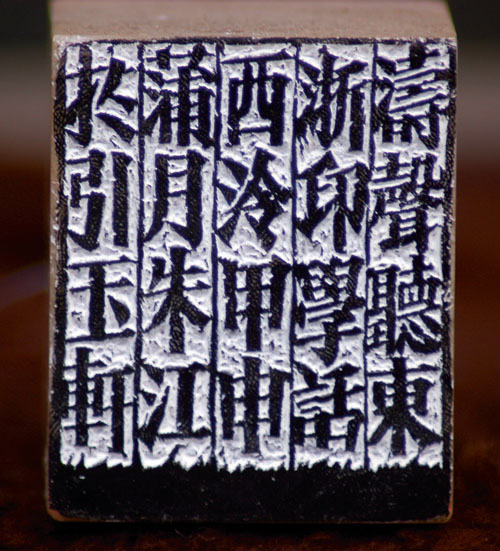 濤聲聽東
浙印學話
西泠甲申
蒲月朱江
扵引玉軒